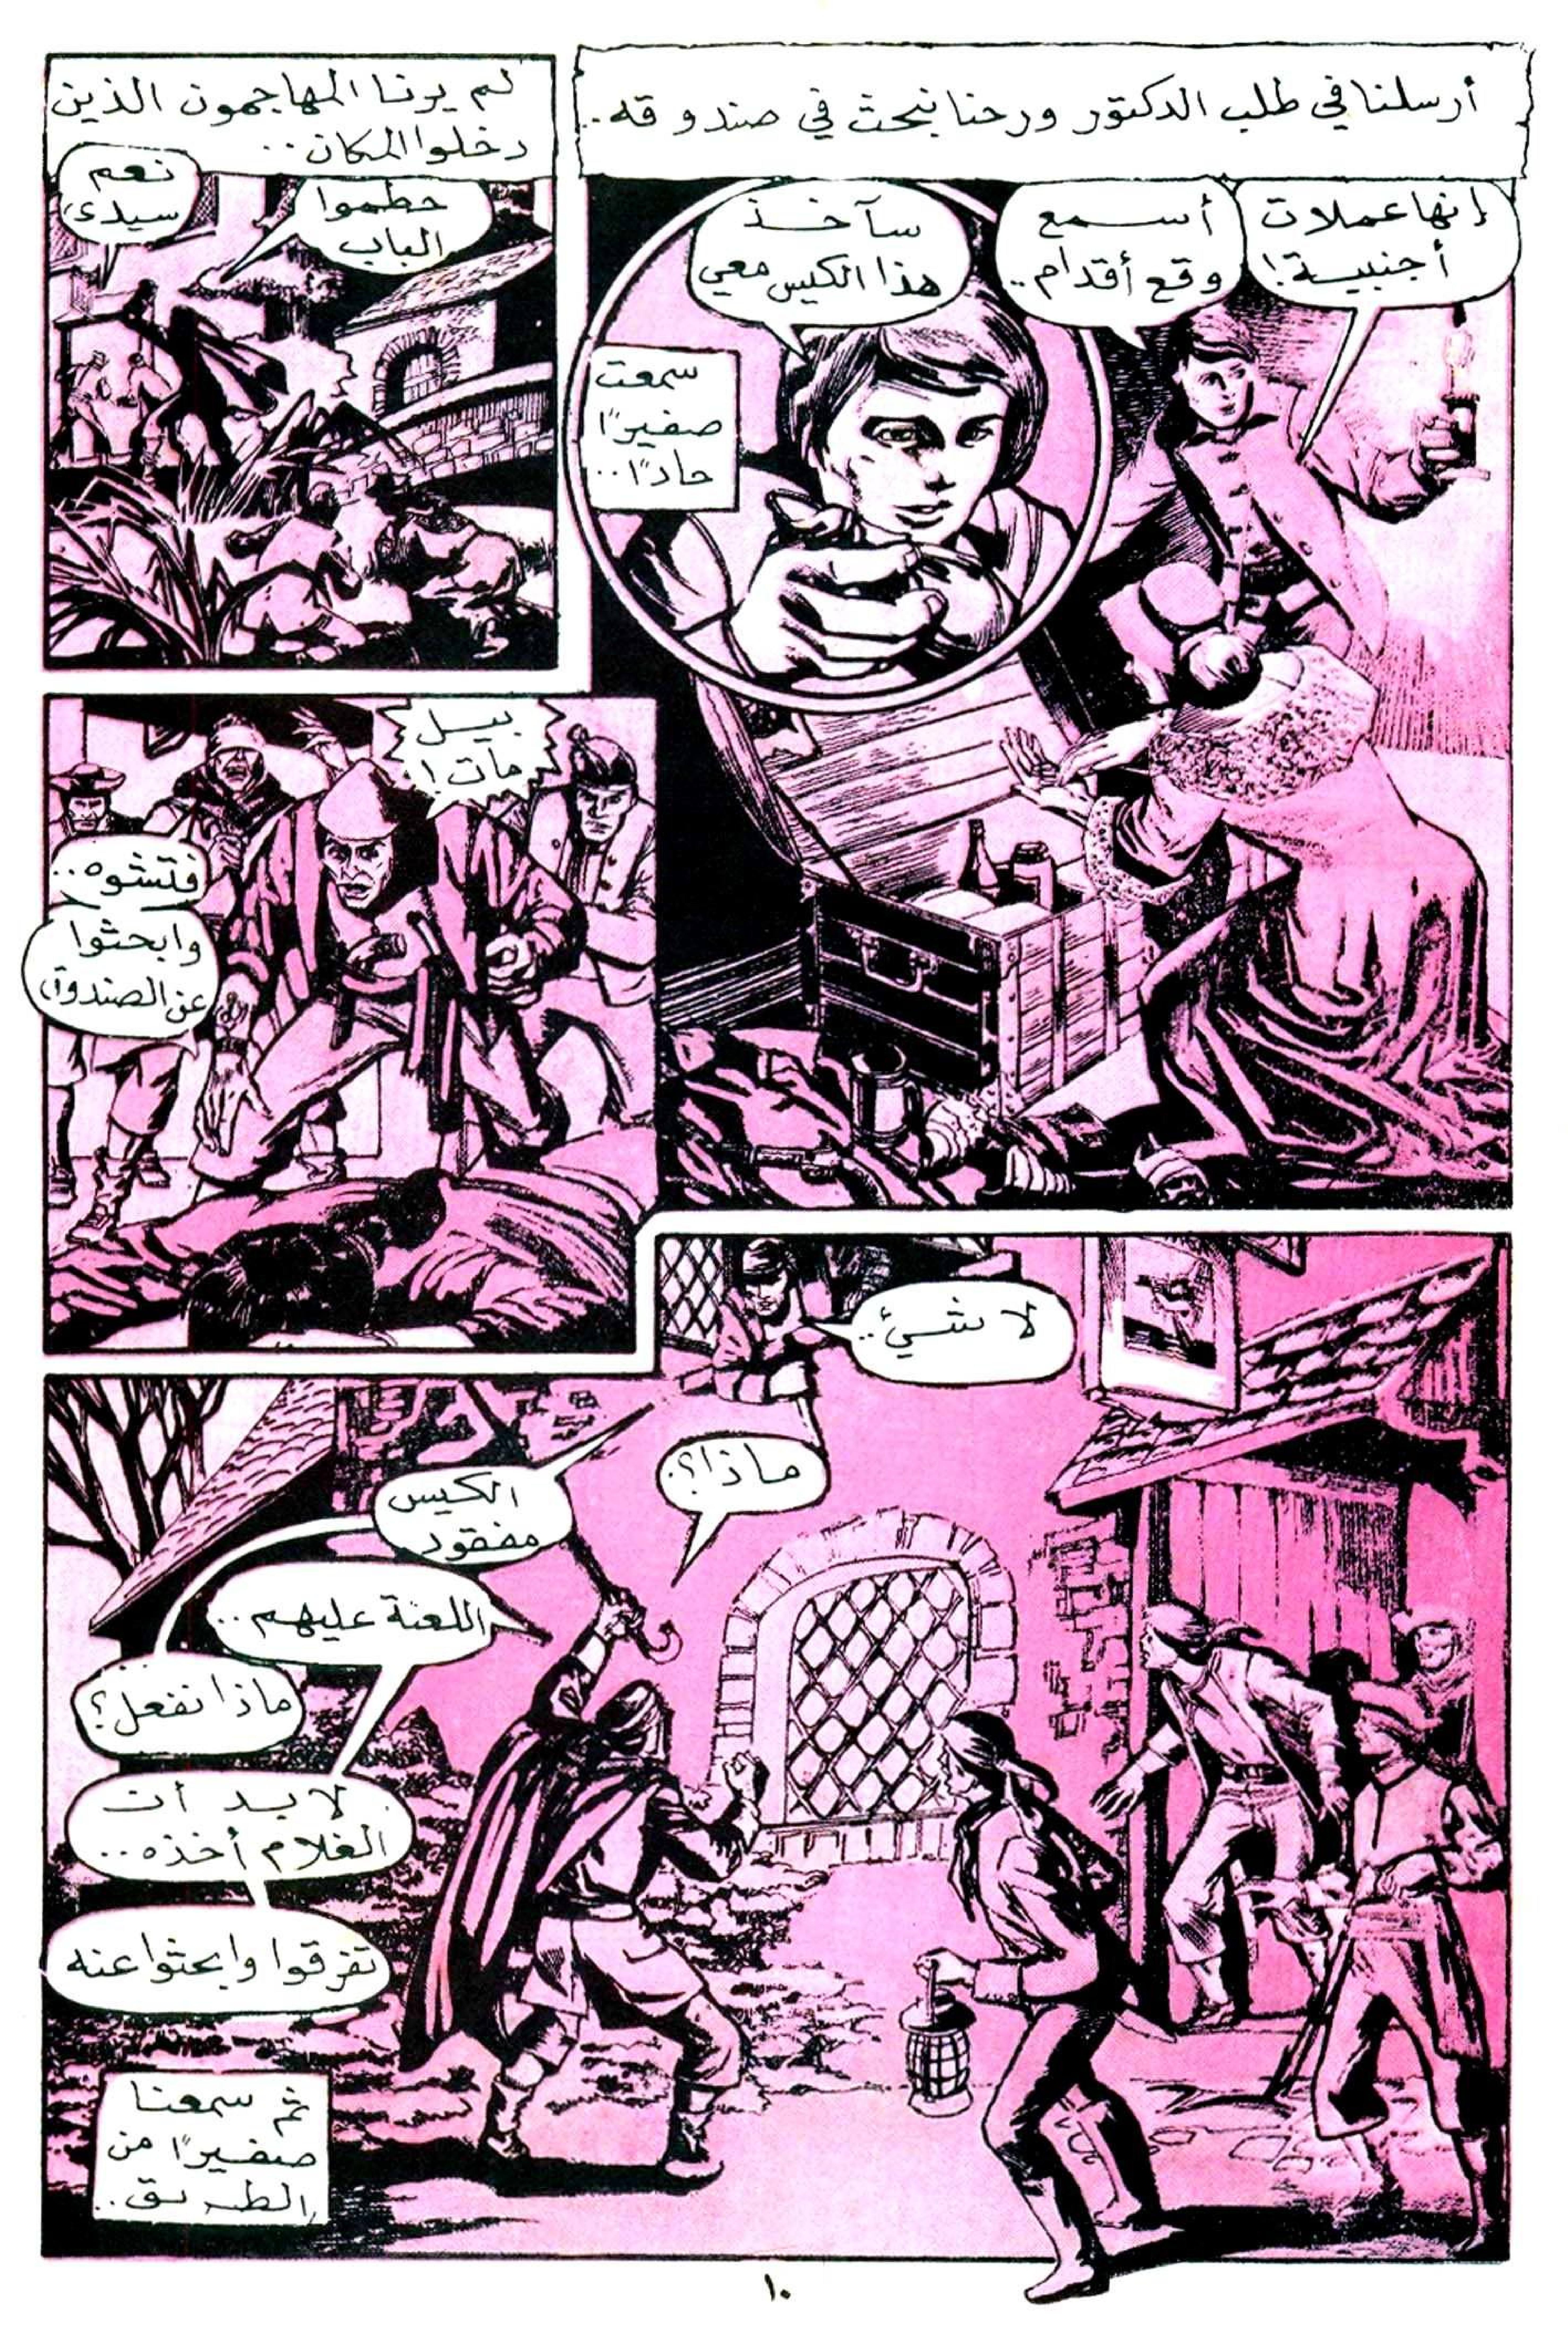 أرسلنا في طلب الدكتور ورحنا نبحث في صندوقه..
إنها عملات
أجنبية!
أسمع
وقع أقدام..
سآخذ
هذا الكيس معي
سمعت
صفيرًا
حادًا..
لم يرنا المهاجمون الذين
دخلوا المكان..
حطموا
الباب
نعم
سيدي
بيل
مات!
فتشوه..
وابحثوا
عن الصندوق
لا شيئ..
ماذا؟
الكيس
مفقود
اللعنة عليهم..
ماذا نفعل؟
لا بد أن
الغلام أخذه..
تفرقوا وابحثوا عنه
ثم سمعنا
صفيرًا من
الطريق..
١٠